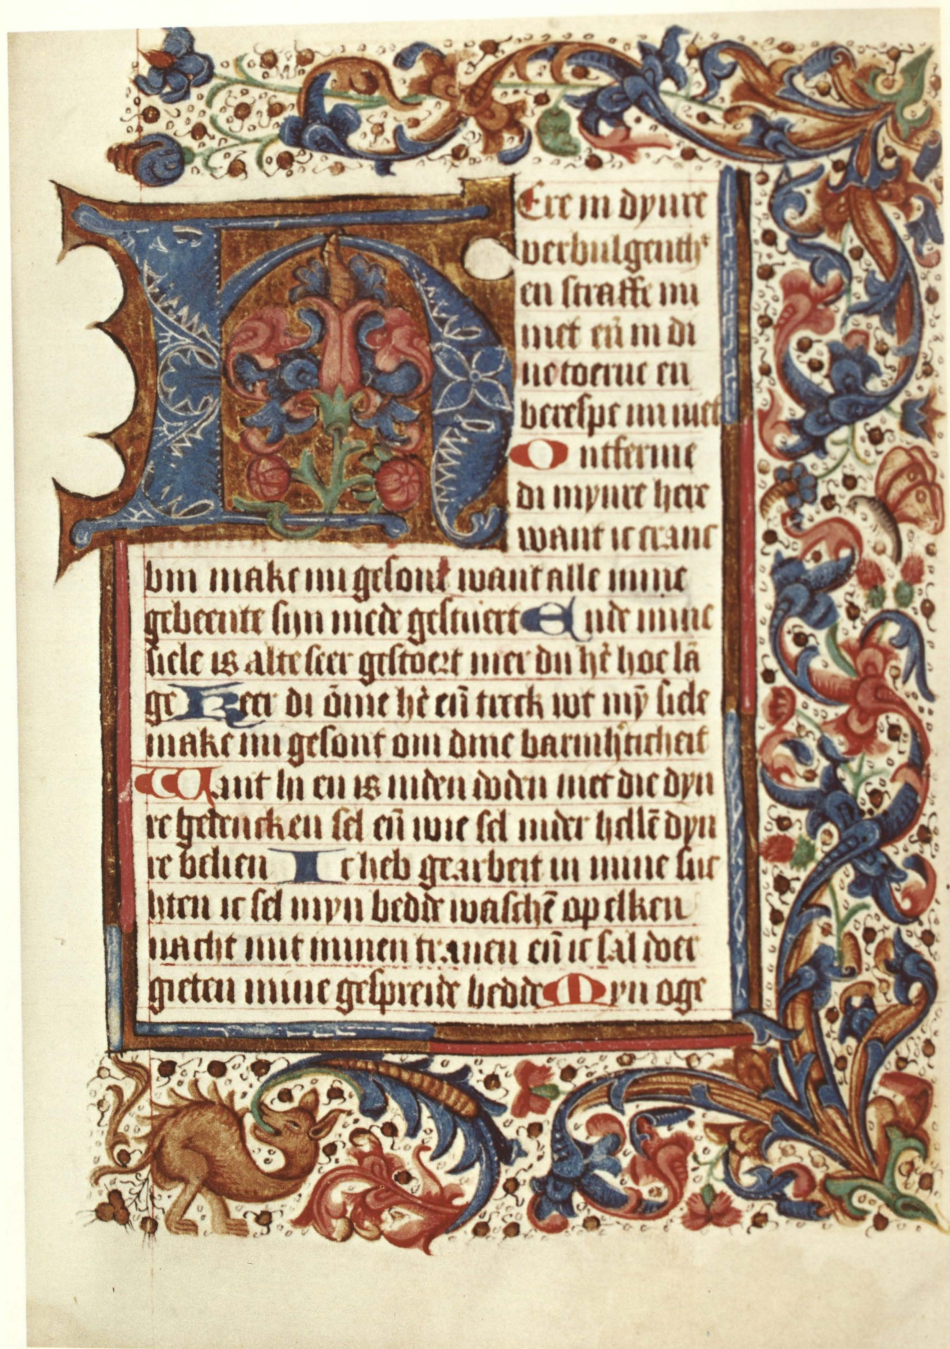 HEre in dynre
verbulgenth᾿
en straffe mi
niet eñ in di
ne toerne en
berespe mi niet
Ontferme
di mynre here
want ic cranc
bin make mi gesont want alle mine
gebeente sijn mede gestuert Ende mine
siele is alte seer gestoert mer du hr̄ hoe lā
ge Keer di ōme hr̄ eñ treck wt mȳ siele
make mi gesont om dine barmh᾿ticheit
Want hi en is inden doden niet die dyn
re gedencken sel eñ wie sel inder hellē dyn
re belien Ic heb gearbeit in mine suc
hten ic sel myn bedde waschē op elken
nacht mit minen tranen eñ ic sal doer
gieten mine gespreide bedde Myn oge